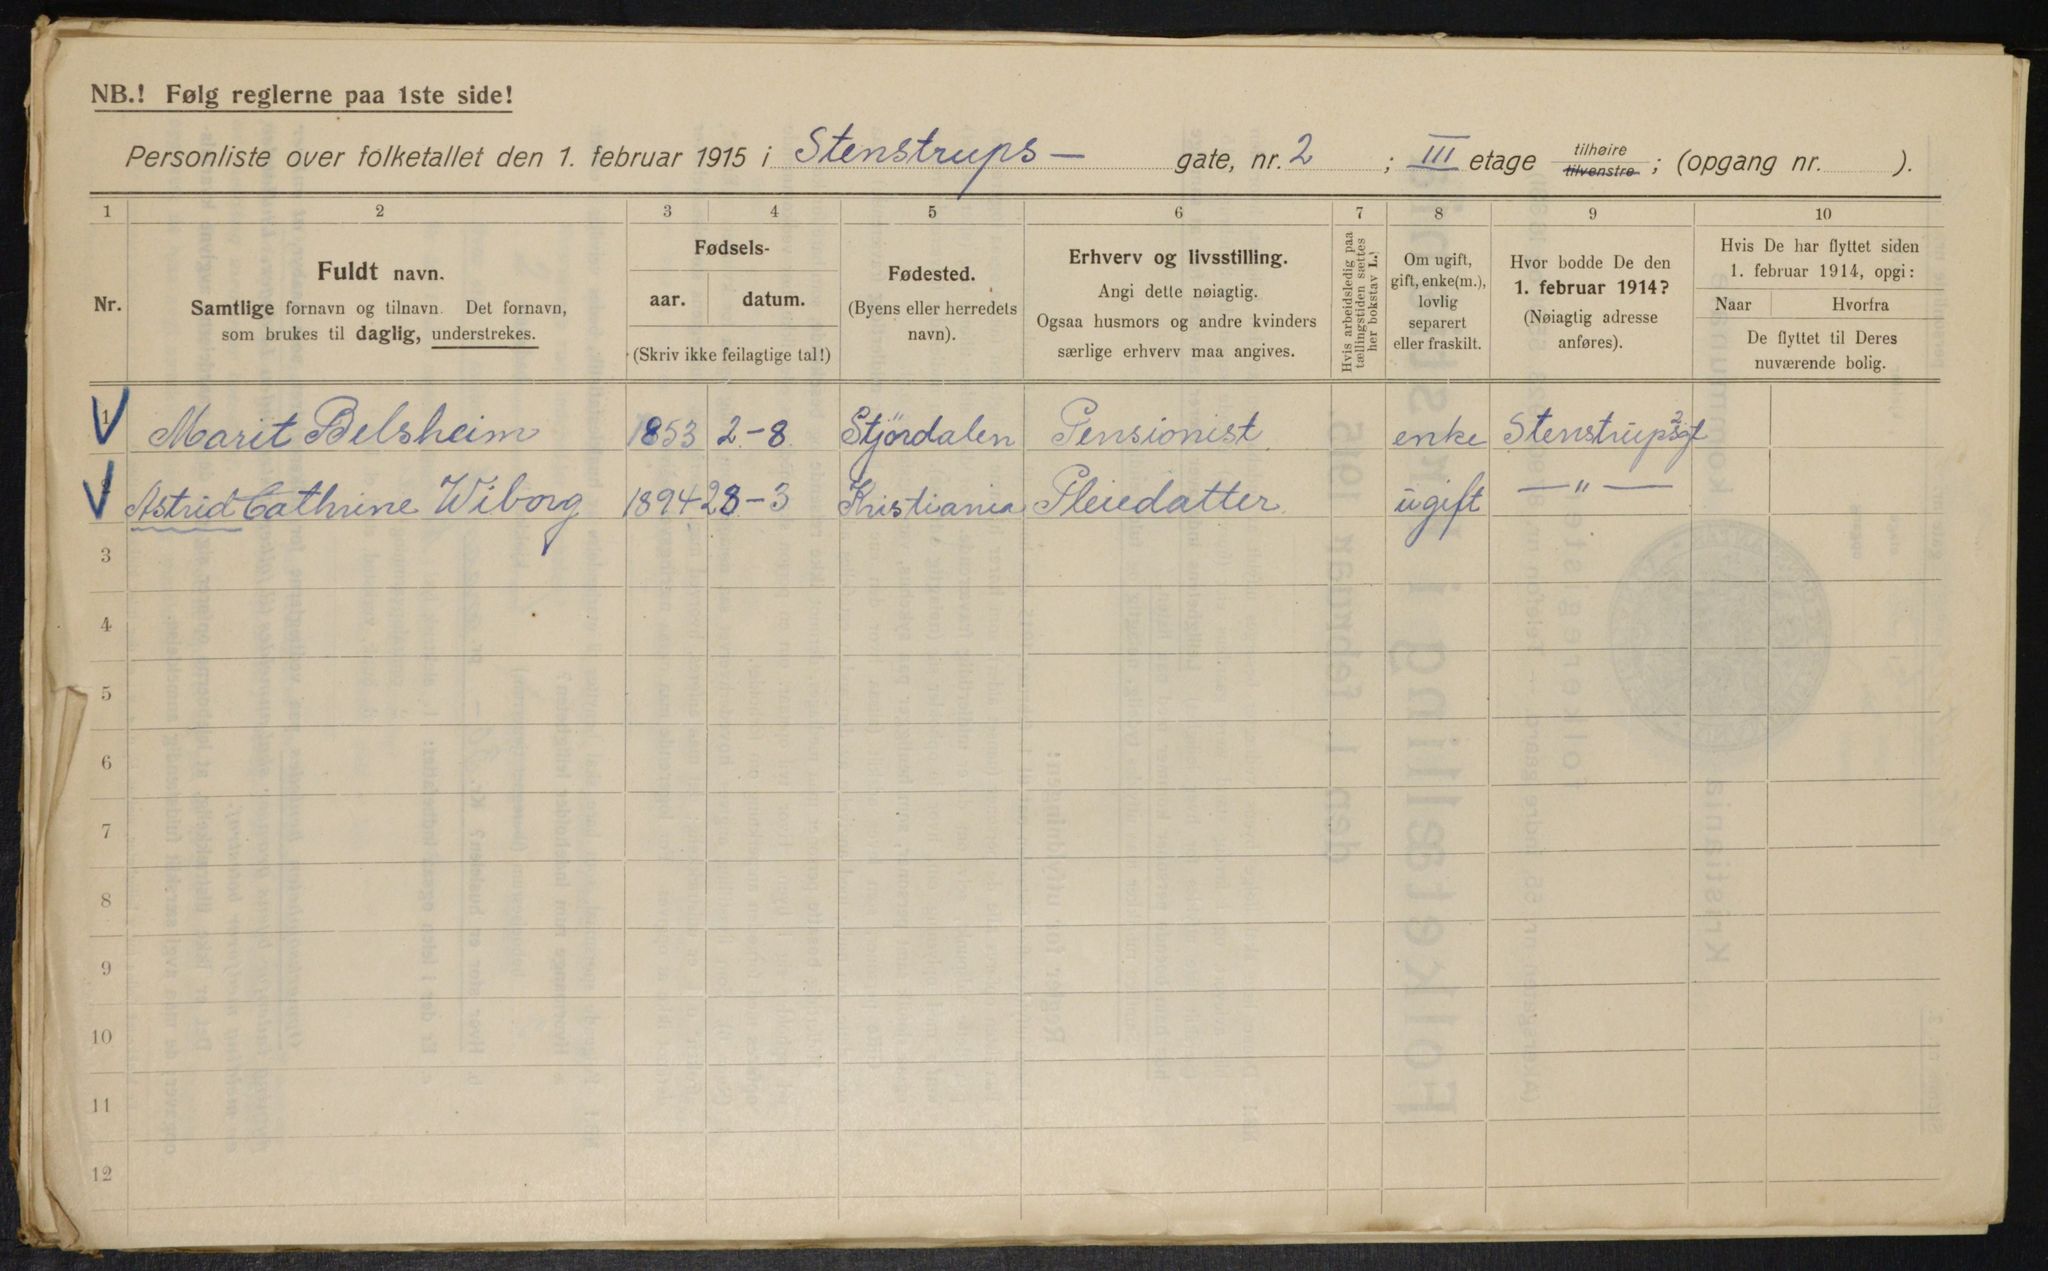 NB.! Følg reglerne paa 1ste side!
Personliste over folketallet den 1. februar 1915 i Stenstrups — gate, nr. 2 ; III etage tilhøire tilvenstre ; (opgang nr. ).
1 2 3 4 5 6 7 8 9 10
Nr.
Fuldt navn.
Samtlige fornavn og tilnavn. Det fornavn,
som brukes til daglig, understrekes.
Fødsels-
aar. datum.
(Skriv ikke feilagtige tal!)
Fødested.
(Byens eller herredets
navn).
Erhverv og livsstilling.
Angi dette nøiagtig.
Ogsaa husmors og andre kvinders
særlige erhverv maa angives.
Hvis arbeidsledig paa
tællingstiden sættes
her bokstav L.!
Om ugift,
gift, enke(m.),
lovlig
separert
eller fraskilt.
Hvor bodde De den
1. februar 1914?
(Nøiagtig adresse
anføres).
Hvis De har flyttet siden
1. februar 1914, opgi:
Naar Hvorfra
De flyttet til Deres
nuværende bolig.
1 Marit Belsheim 1853 2-8 Stjördalen Pensionist enke Stenstrupsgt 2
2 Astrid Cathrine Wiborg 1894 28-3 Kristiania Pleiedatter ugift — " —
3
4
5
6
7
8
9
10
11
12